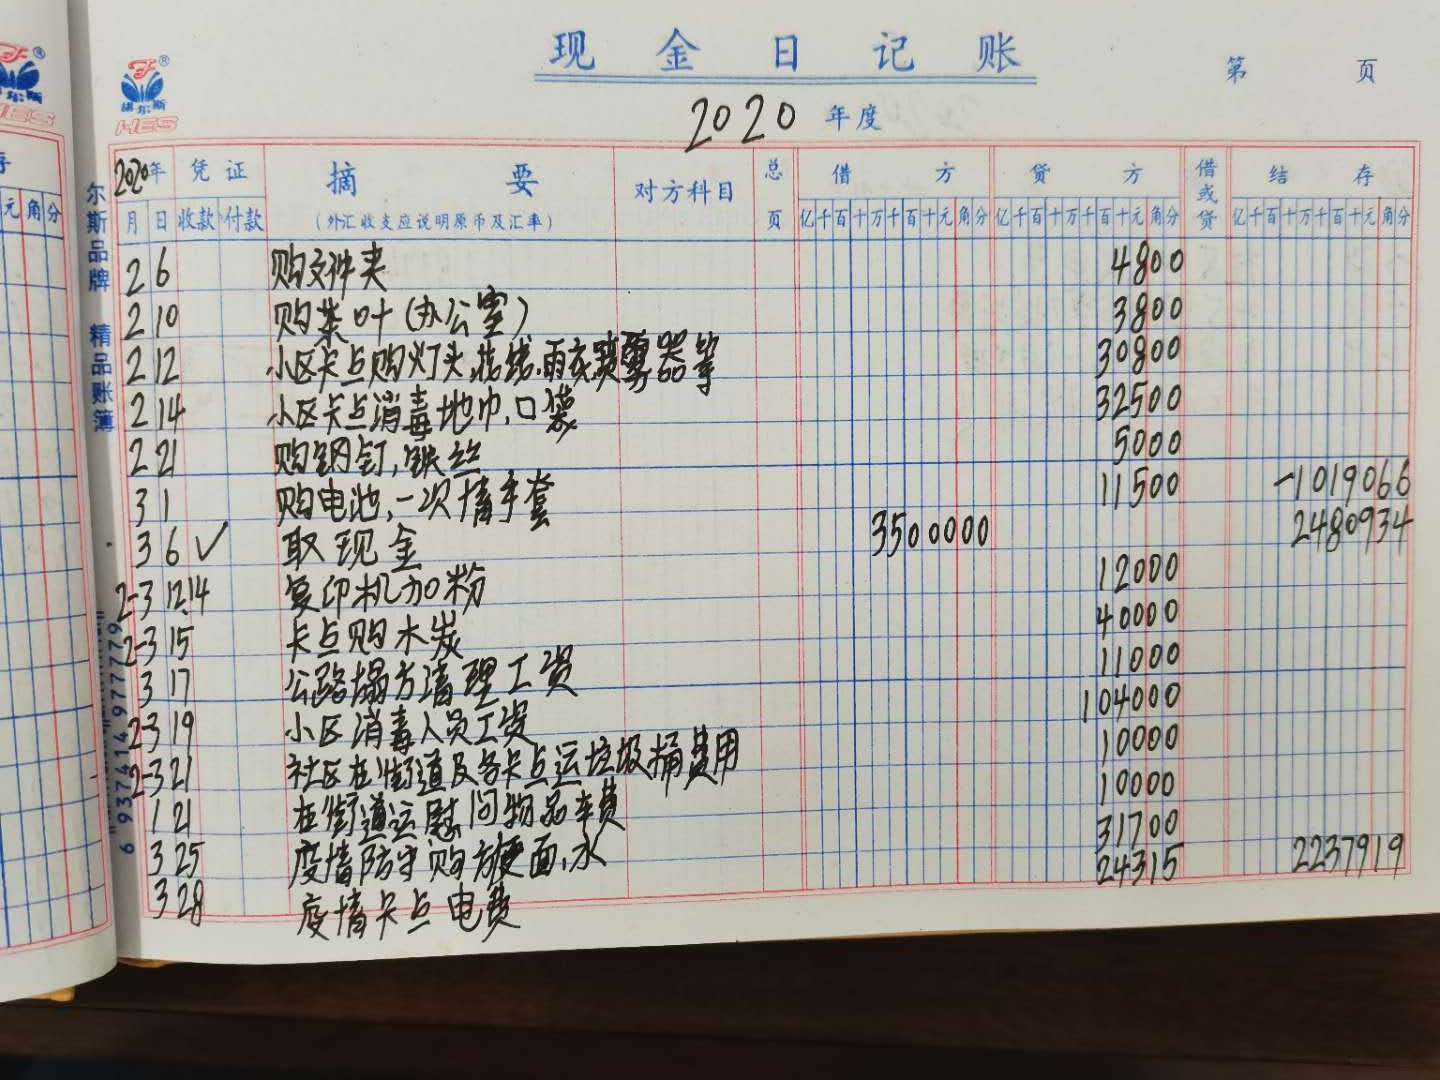 现金日记账
第 页
2020 年度
HES
尔斯品牌 精品账簿
6 937414 977779
2020年 凭证 摘要 对方科目 总页 借方 贷方 借或贷 结存
月 日 收款 付款 (外汇收支应说明原币及汇率) 亿千百十万千百十元角分 亿千百十万千百十元角分 亿千百十万千百十元角分
元角分
2 6 购文件夹 4800
2 10 购茶叶(办公室) 3800
2 12 小区卡点购灯头,接线,雨衣,喷雾器等 30800
2 14 小区卡点消毒地巾,口袋 32500
2 21 购钢钉,铁丝 5000
3 1 购电池,一次性手套 11500 -1019066
3 6 ✓ 取现金 3500000 2480934
2-3 12.14 复印机加粉 12000
2-3 15 卡点购木炭 40000
3 17 公路塌方清理工资 11000
2-3 19 小区消毒人员工资 104000
2-3 21 社区在街道及各卡点运垃圾桶费用 10000
1 21 在街道运慰问物品车费 10000
3 25 疫情防守购方便面,水 31700
3 28 疫情卡点电费 24315 2237919